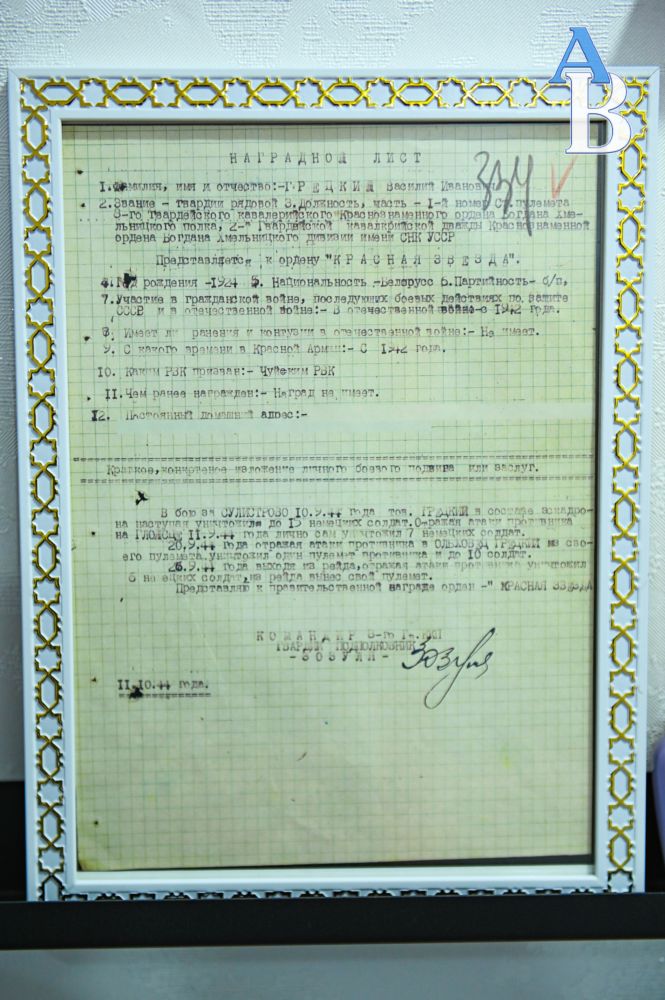 АВ
НАГРАДНОЙ ЛИСТ
334
1. Фамилия, имя и отчество:-ГРЕЦКИЙ Василий Иванович
2. Звание - гвардии рядовой 3. Должность, часть - 1-й номер Ст.пулемета
8-го Гвардейского кавалерийского Краснознаменного ордена Богдана Хме-
льницкого полка, 2-й Гвардейской кавалерийской дважды Краснознаменной
ордена Богдана Хмельницкого дивизии имени СНК УССР
Представляется к ордену "КРАСНАЯ ЗВЕЗДА".
4. Год рождения -1924 5. Национальность -Белорусс 6. Партийность- б/п,
7. Участие в гражданской войне, последующих боевых действиях по защите
СССР и в отечественной войне:- В отечественной войне с 1942 года.
8. Имеет ли ранения и контузии в отечественной войне:- Не имеет.
9. С какого времени в Красной Армии:- С 1942 года.
10. Каким РВК призван:- Чуйским РВК
11. Чем ранее награжден:- Наград не имеет.
12. Постоянный домашний адрес:-
Краткое, конкретное изложение личного боевого подвига или заслуг.
В бою за СУЛИСТРОВО 10.9.44 года тов. ГРЕЦКИЙ в составе эскадро-
на наступая уничтожил до 15 немецких солдат. Отражая атаки противника
на 11.9.44 года лично сам уничтожил 7 немецких солдат.
20.9.44 года отражая атаки противника в ГРЕЦКИЙ из сво-
его пулемета, уничтожил один пулемет противника и до 10 солдат.
23.9.44 года выходя из рейда, отражая атаки противника уничтожил
6 немецких солдат, из рейда вынес свой пулемет.
Представляю к правительственной награде орден -" КРАСНАЯ ЗВЕЗДА
КОМАНДИР 8-го Гв.КП
ГВАРДИИ ПОДПОЛКОВНИК
-ЗОЗУЛЯ- Зозуля
11.10.44 года.